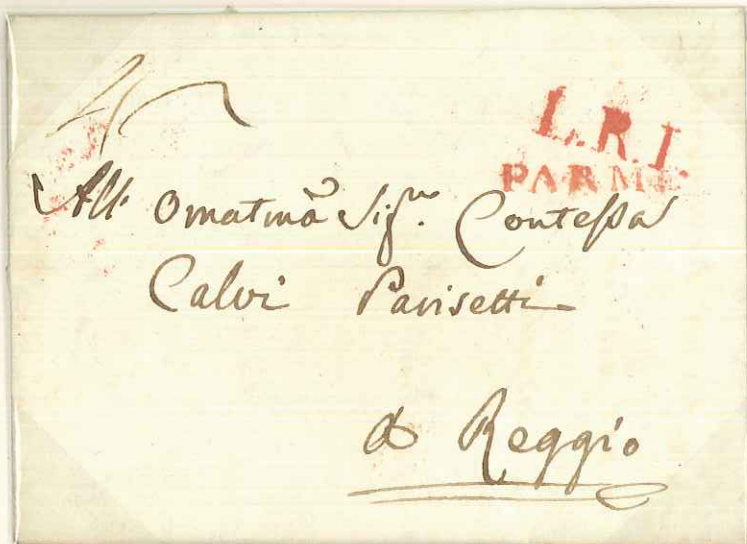 L.R.I
PARME
All' Ornatma Sigra. Contessa
Calvi Parisetti
a Reggio